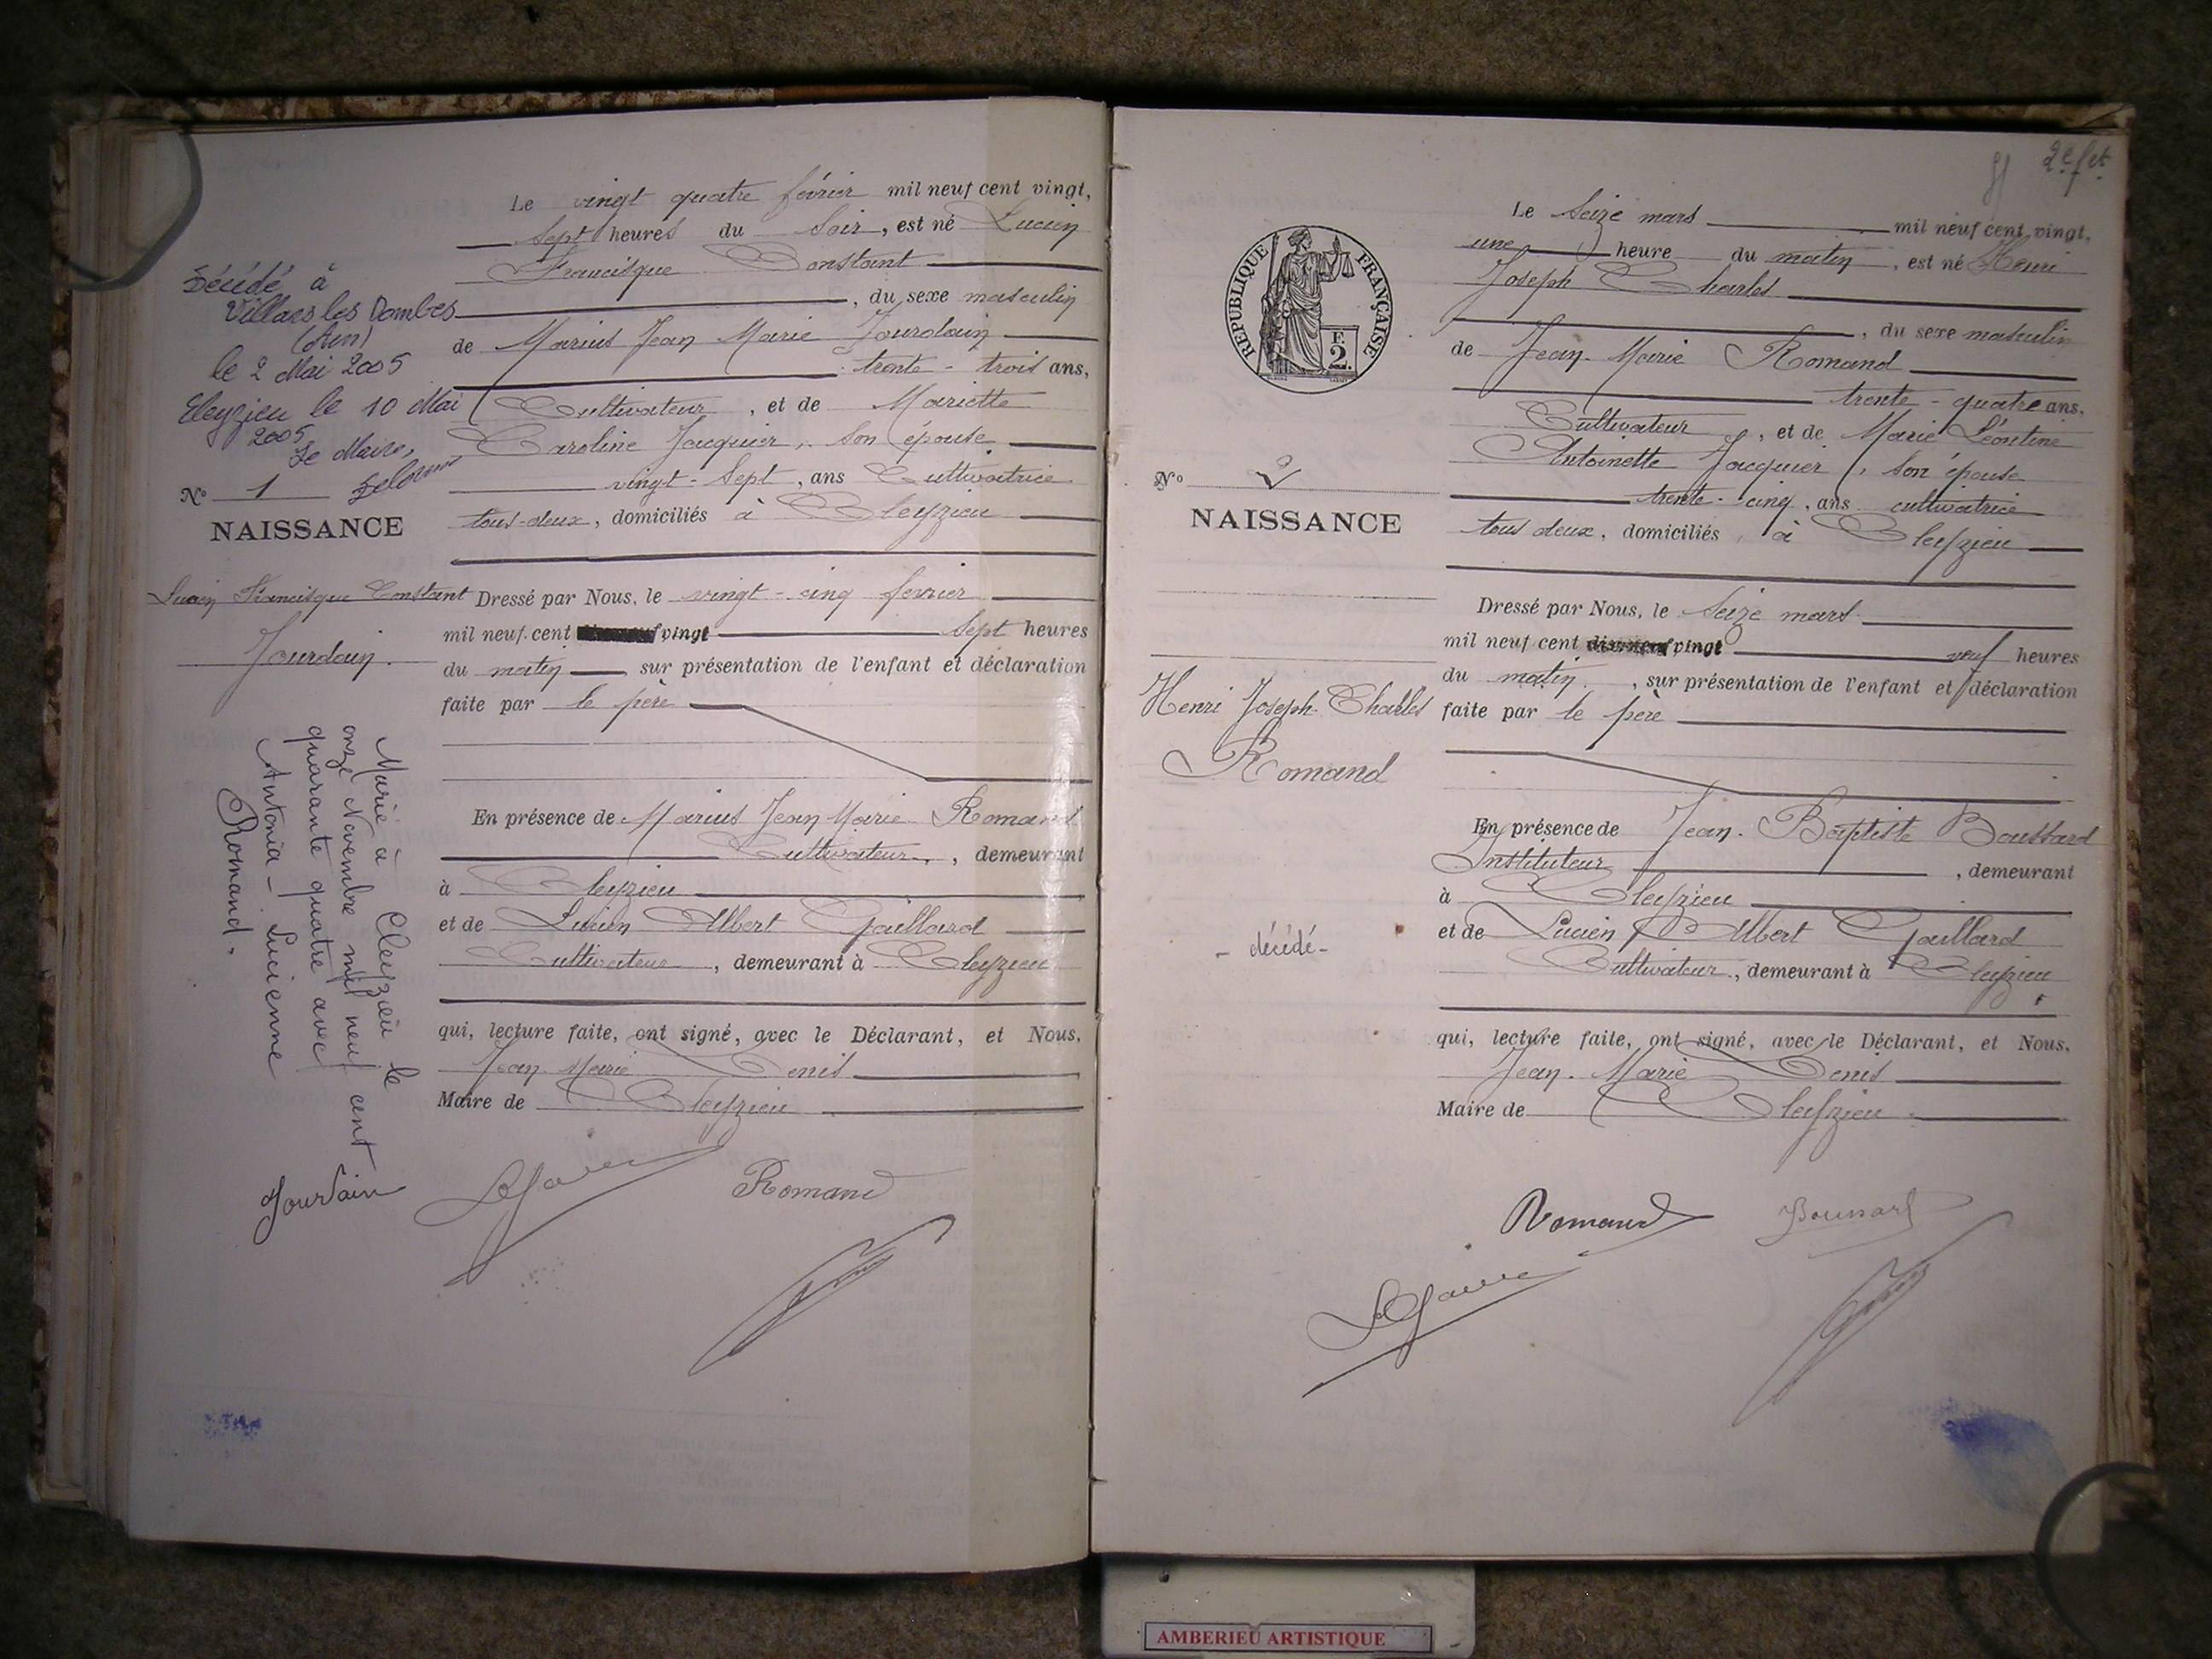 Le vingt quatre février mil neuf cent vingt,
Sept heures du Soir, est né Lucien
Francisque Constant
, du sexe masculin
de Marius Jean Marie Jourdain
trente-trois ans,
Cultivateur, et de Mariette
Caroline Jacquier, Son épouse
vingt-Sept, ans Cultivatrice
tous-deux, domiciliés à Cleyzieu
Décédé à
Villars les Dombes
(Ain)
le 2 Mai 2005
Cleyzieu le 10 Mai
2005
Le Maire,
No 1
NAISSANCE
Lucien Francisque Constant
Jourdain.
Dressé par Nous, le vingt-cinq février
mil neuf cent vingt Sept heures
du matin sur présentation de l'enfant et déclaration
faite par le père
Marié à Cleyzieu le
onze Novembre mil neuf cent
quarante quatre avec
Antonia - Lucienne
Romand.
En présence de Marius Jean Marie Romand
Cultivateur, demeurant
à Cleyzieu
et de Lucien Albert Gaillard
Cultivateur, demeurant à Cleyzieu
qui, lecture faite, ont signé, avec le Déclarant, et Nous,
Jean-Marie Denis
Maire de Cleyzieu
Jourdain
Romand
2e f.et
REPUBLIQUE FRANÇAISE
E
2.
Le Seize mars mil neuf cent vingt,
une heure du matin, est né Henri
Joseph Charles
, du sexe masculin
de Jean-Marie Romand
trente-quatre ans,
Cultivateur, et de Marie Léontine
Antoinette Jacquier, Son épouse
trente-cinq, ans cultivatrice
tous deux, domiciliés à Cleyzieu
No 2
NAISSANCE
Henri Joseph Charles
Romand
- décédé -
Dressé par Nous, le Seize mars
mil neuf cent vingt neuf heures
du matin, sur présentation de l'enfant et déclaration
faite par le père
En présence de Jean-Baptiste Boussard
Instituteur, demeurant
à Cleyzieu
et de Lucien Albert Gaillard
Cultivateur, demeurant à Cleyzieu
qui, lecture faite, ont signé, avec le Déclarant, et Nous,
Jean-Marie Denis
Maire de Cleyzieu
Romand
Boussard
AMBERIEU ARTISTIQUE